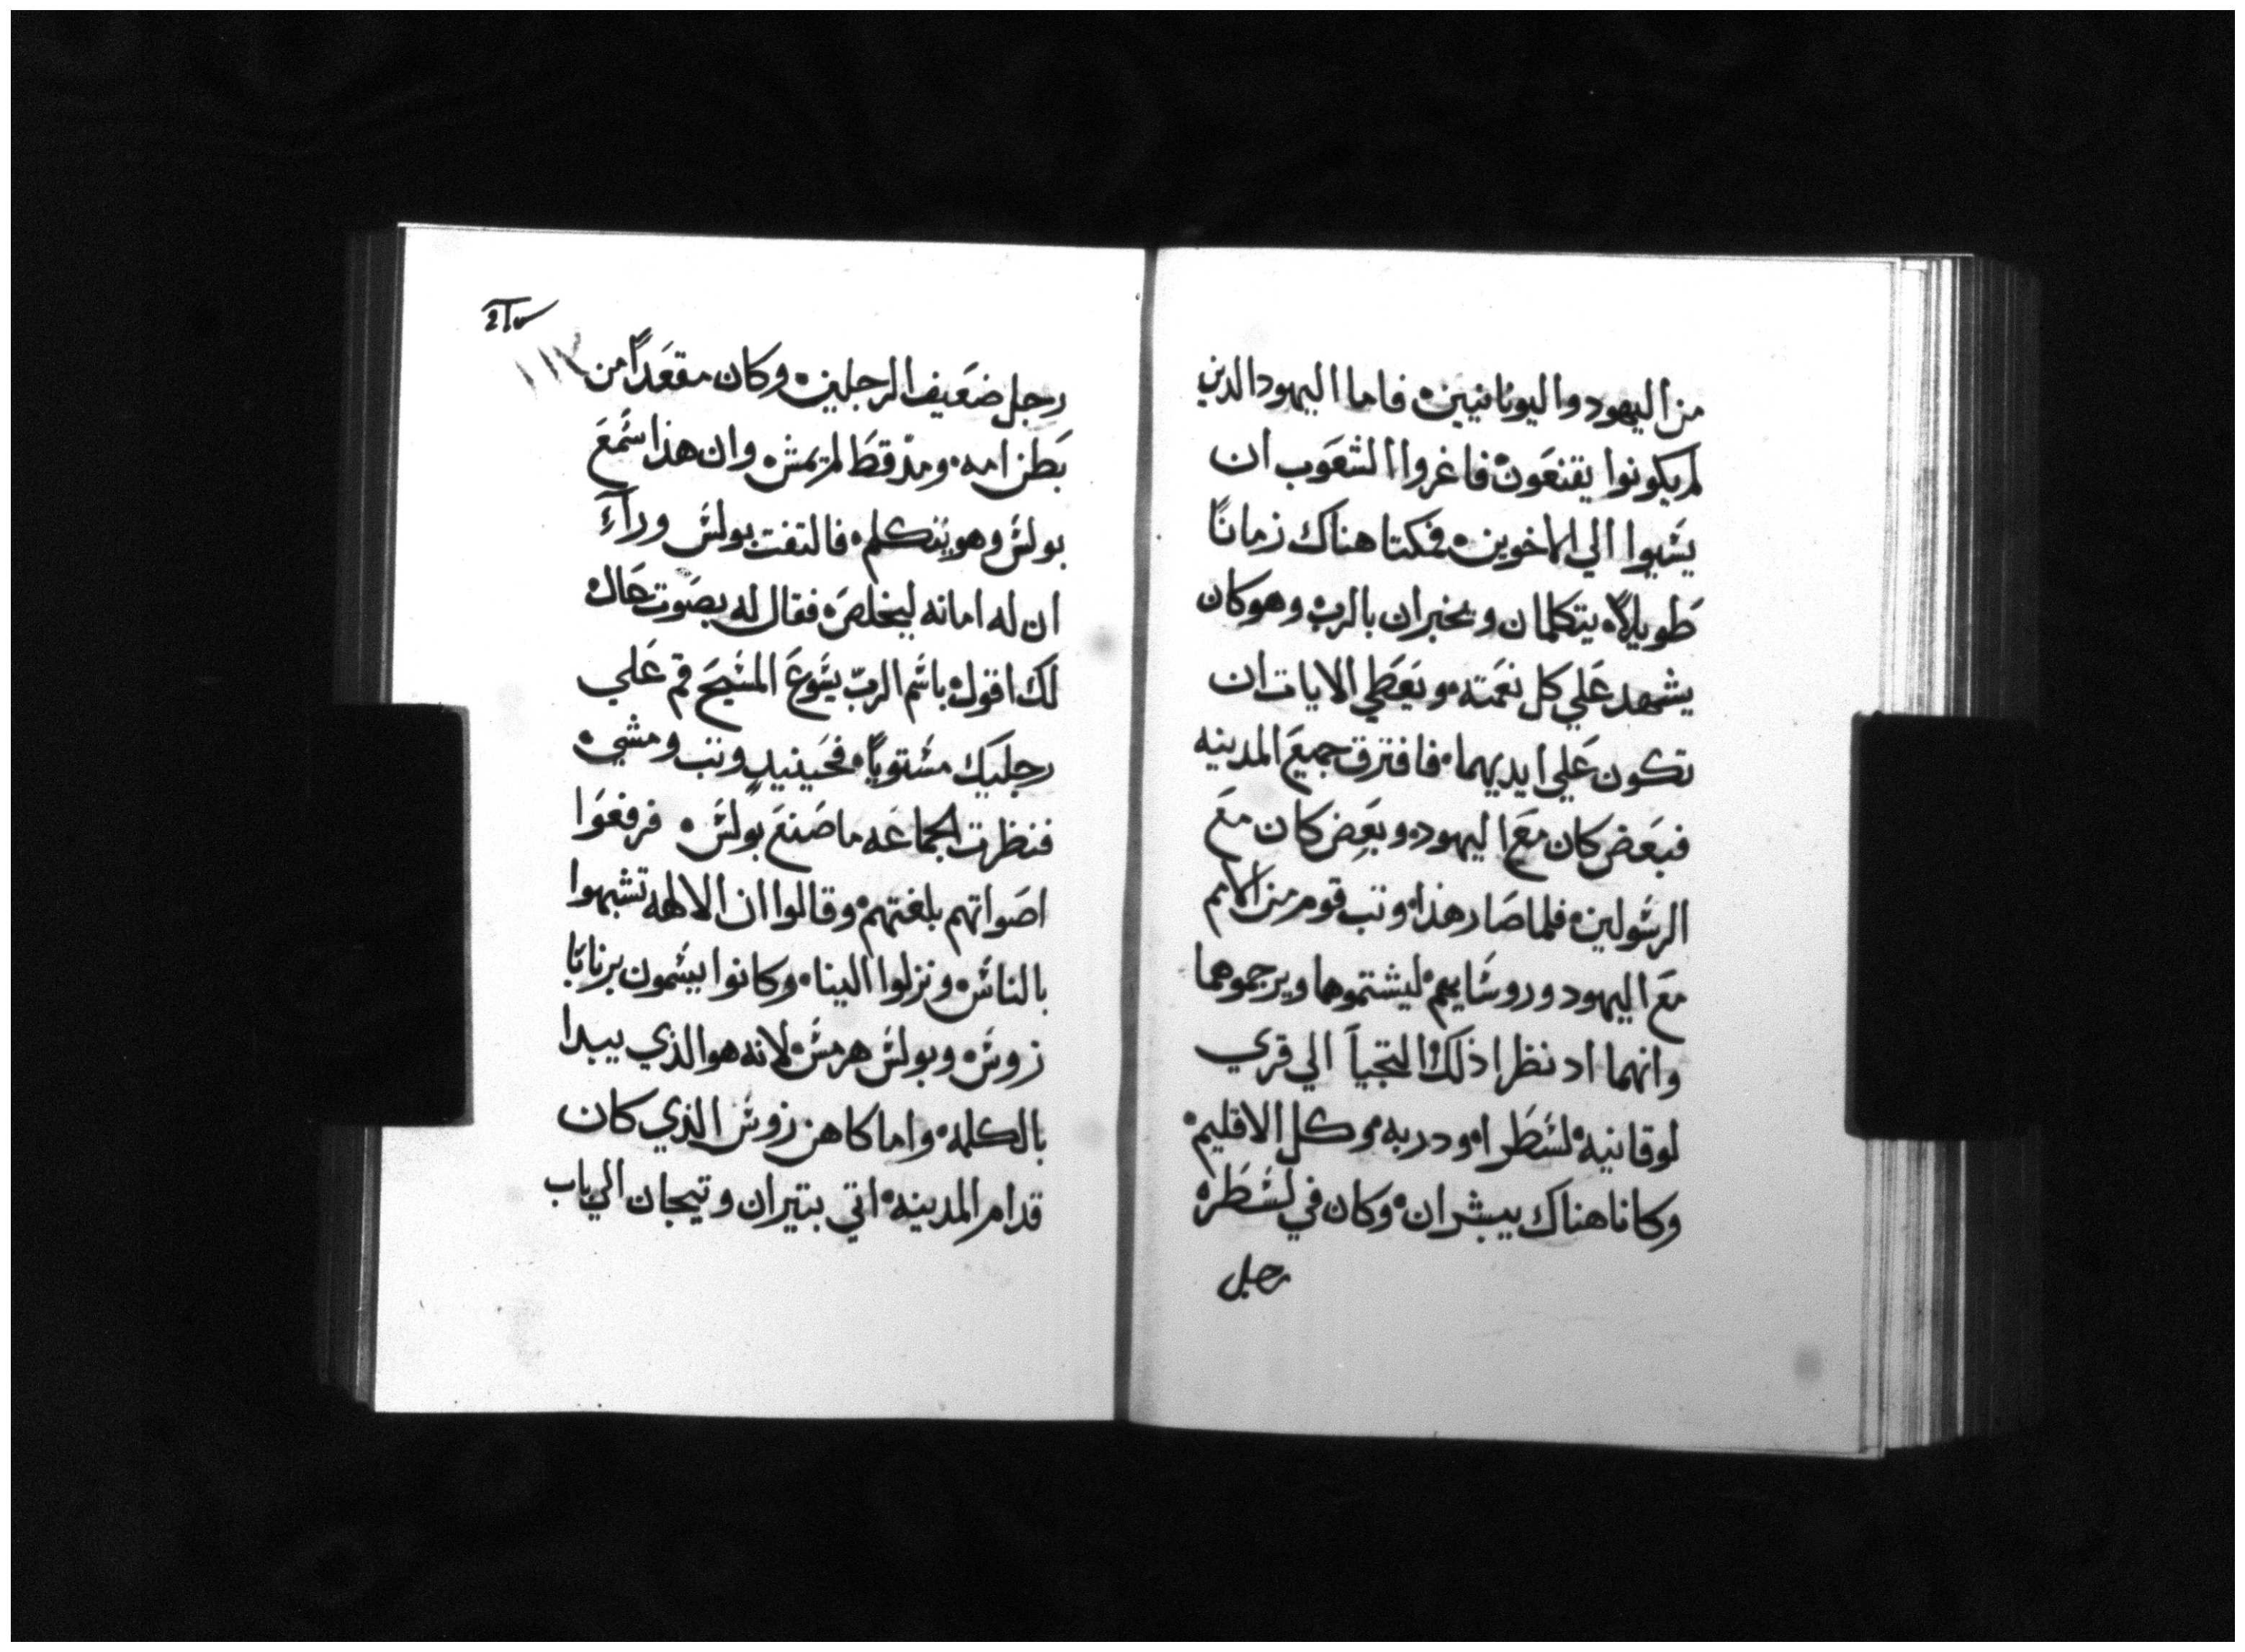 من اليهود واليونانيين ه فاما اليهود الذين
لم يكونوا يقنعون ه فاغروا الشعوب ان
يشيوا الي الاخوين ه فمكتا هناك زمانًا
طويلاً ه يتكلمان ويخبران بالرب ه وهو كان
يشهد علي كل نعمته ه ويعطي الايات ان
تكون علي ايديهما ه فافترق جميع المدينه
فبعض كان مع اليهود ه وبعض كان مع
الرسولين ه فلما صار هذا ه وتب قوم من الامم
مع اليهود وروسايهم ه ليشتموهما ويرجموهما
وانهما اد نظرا ذلك التجيا الي قري
لوقانيه ه لسطرا ه ودربه ه وكل الاقليم ه
وكانا هناك يبشران ه وكان في لسطره
رجل
١١٧
رجل ضعيف الرجلين ه وكان مقعدًا من
بطن امه ه ومد قط لم يمش ه وان هذا سمع
بولس وهو يتكلم ه فالتفت بولس ورآء
ان له امانه ليخلص ه فقال له بصوت عال ه
لك اقول ه باسم الربّ يسوع المسيح قم علي
رجليك مستويًا ه فحينيدٍ وتب ومشي ه
فنظرت الجماعه ما صنع بولس ه فرفعوا
اصواتهم بلغتهم ه وقالوا ان الالهه تشبهوا
بالناس ه ونزلوا الينا ه وكانوا يسمون برنابا
زوس ه وبولس هرمس ه لانه هو الذي يبدا
بالكلمه ه واما كاهن زوس الذي كان
قدام المدينه ه اتي بتيران وتيجان الي باب